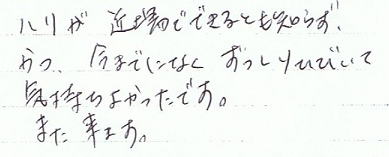 ハリが 近場でできるとも知らず、
かつ、今までになく ずっしりひびいて
気持ちよかったです。
また来ます。